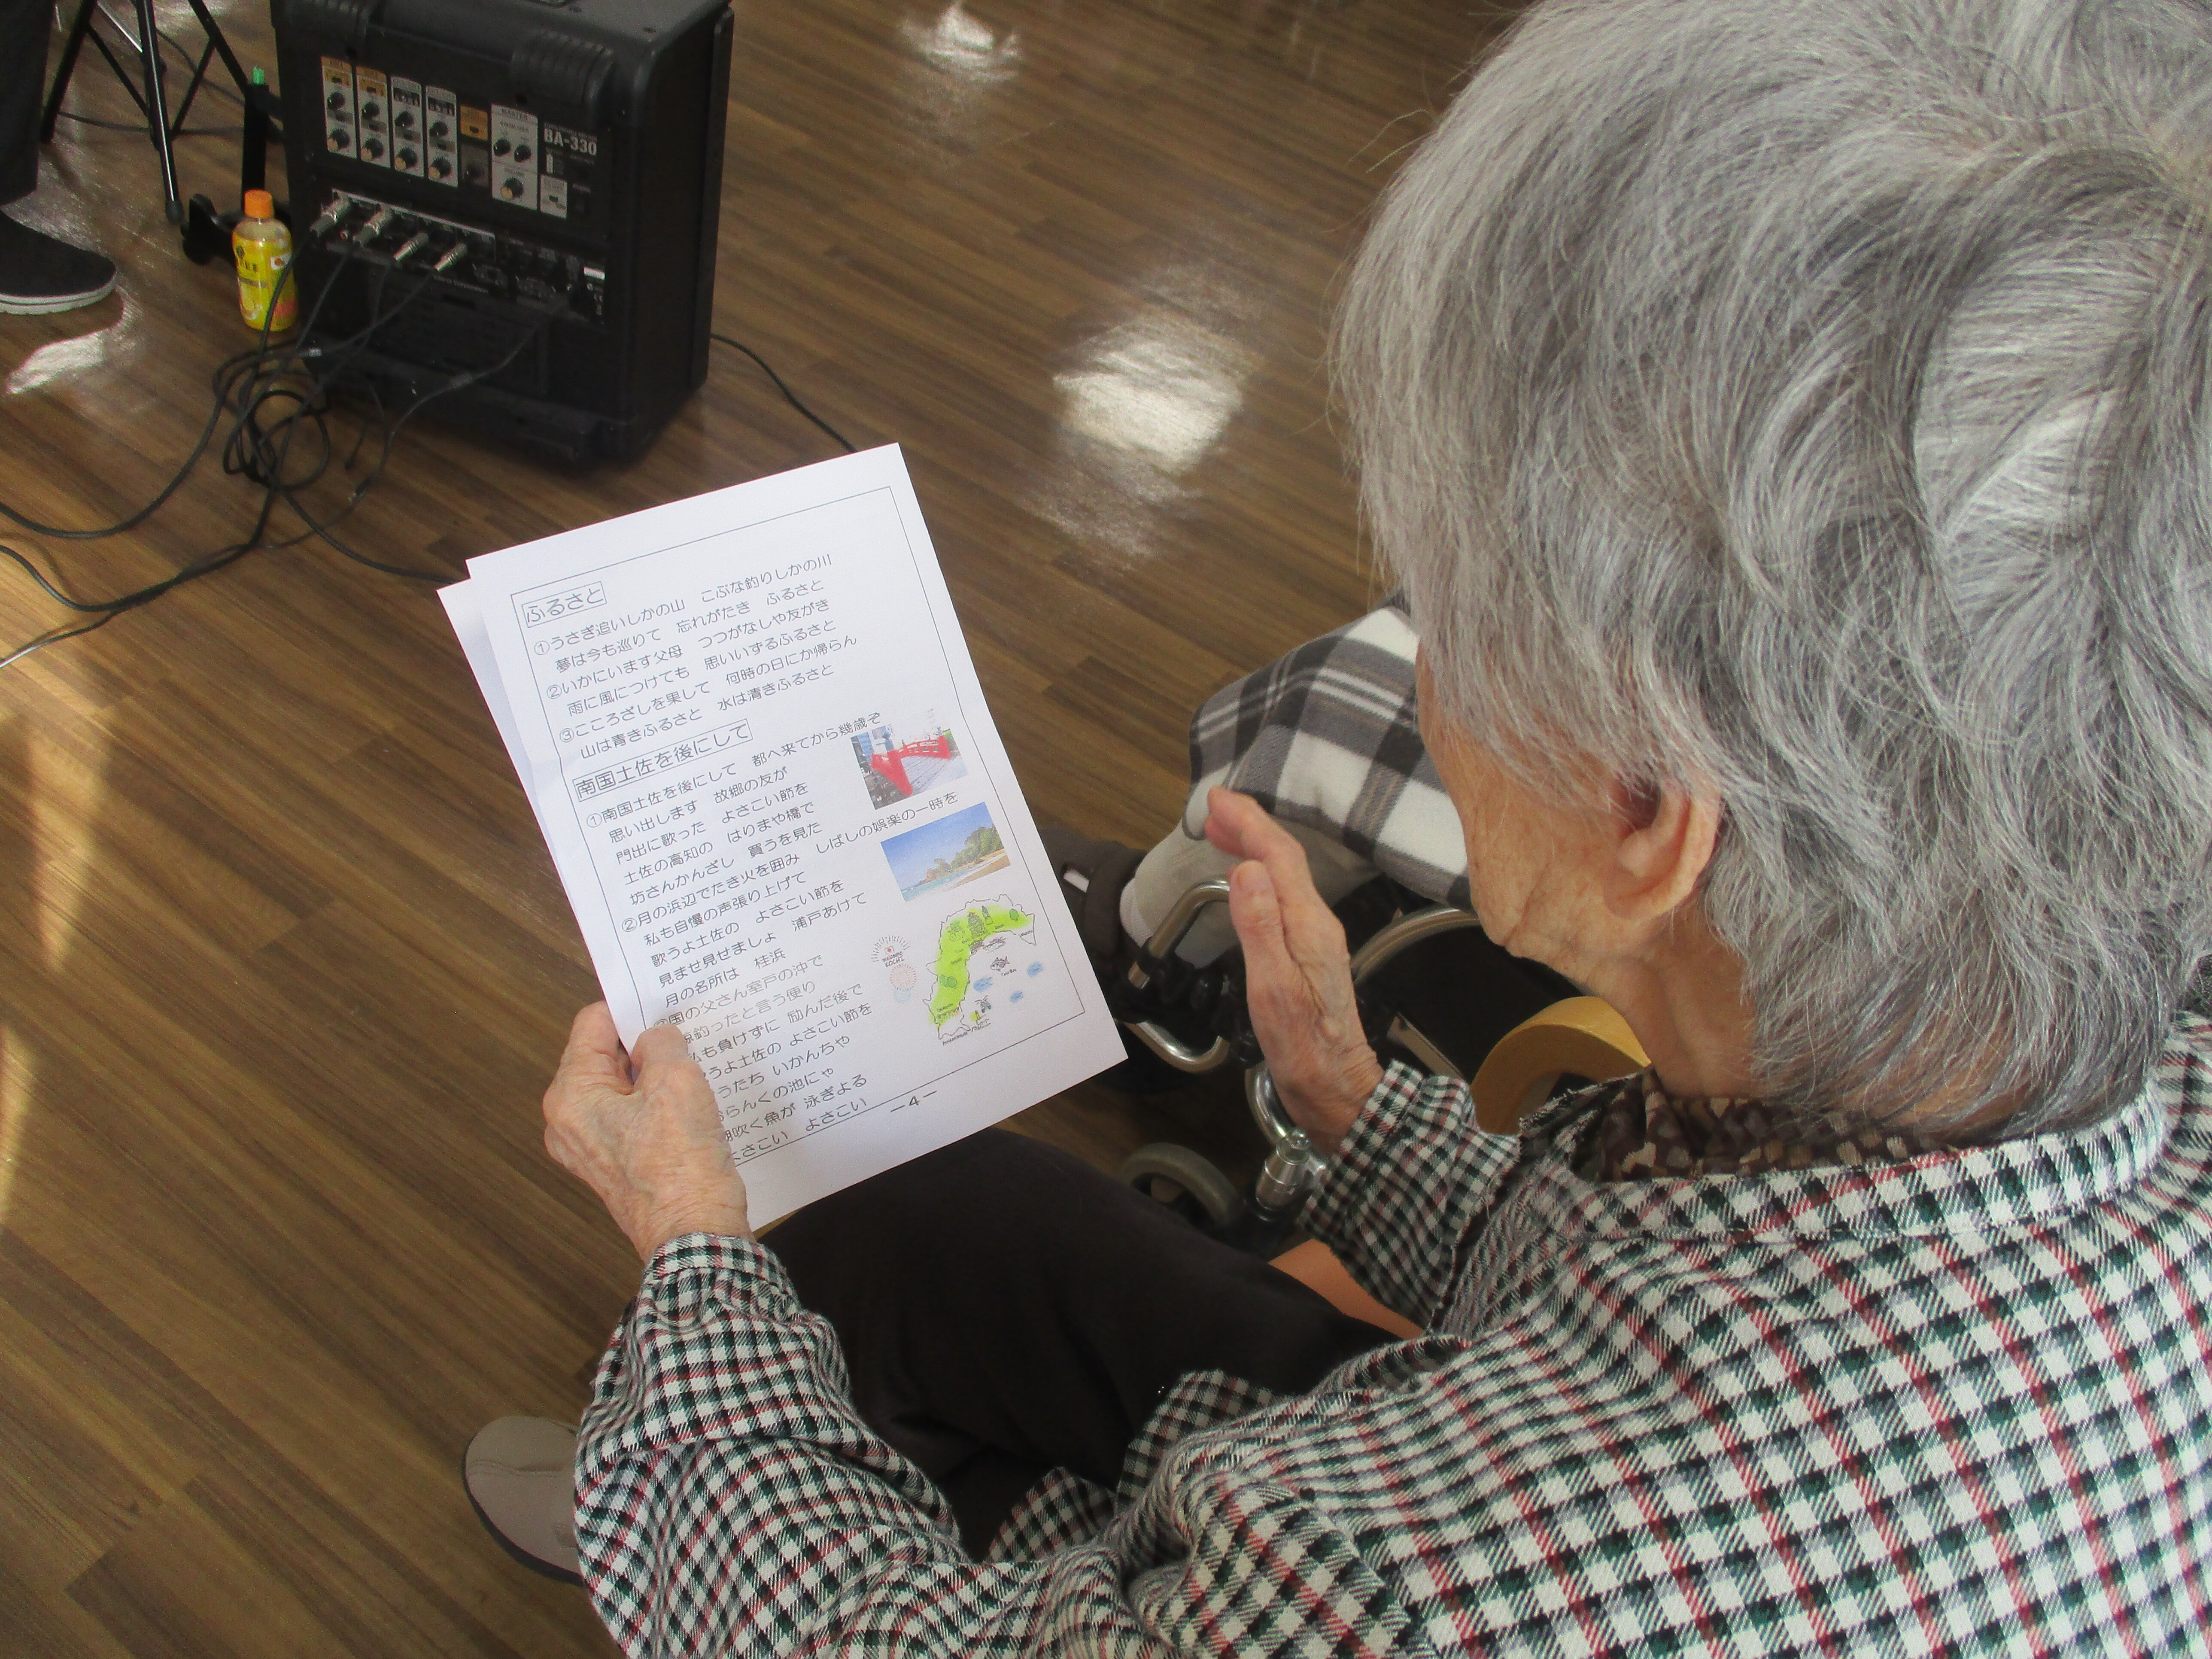 BA-330
MASTER
ふるさと
①うさぎ追いしかの山 こぶな釣りしかの川
夢は今も巡りて 忘れがたき ふるさと
②いかにいます父母 つつがなしや友がき
雨に風につけても 思いいずるふるさと
③こころざしを果して 何時の日にか帰らん
山は青きふるさと 水は清きふるさと
南国土佐を後にして
①南国土佐を後にして 都へ来てから幾歳ぞ
思い出します 故郷の友が
門出に歌った よさこい節を
土佐の高知の はりまや橋で
坊さんかんざし 買うを見た
②月の浜辺でたき火を囲み しばしの娯楽の一時を
私も自慢の声張り上げて
歌うよ土佐の よさこい節を
見ませ見せましょ 浦戸あけて
月の名所は 桂浜
国の父さん室戸の沖で
鯨釣ったと言う便り
私も負けずに 励んだ後で
うよ土佐の よさこい節を
うたち いかんちゃ
おらんくの池にゃ
潮吹く魚が 泳ぎよる
よさこい よさこい
－4－